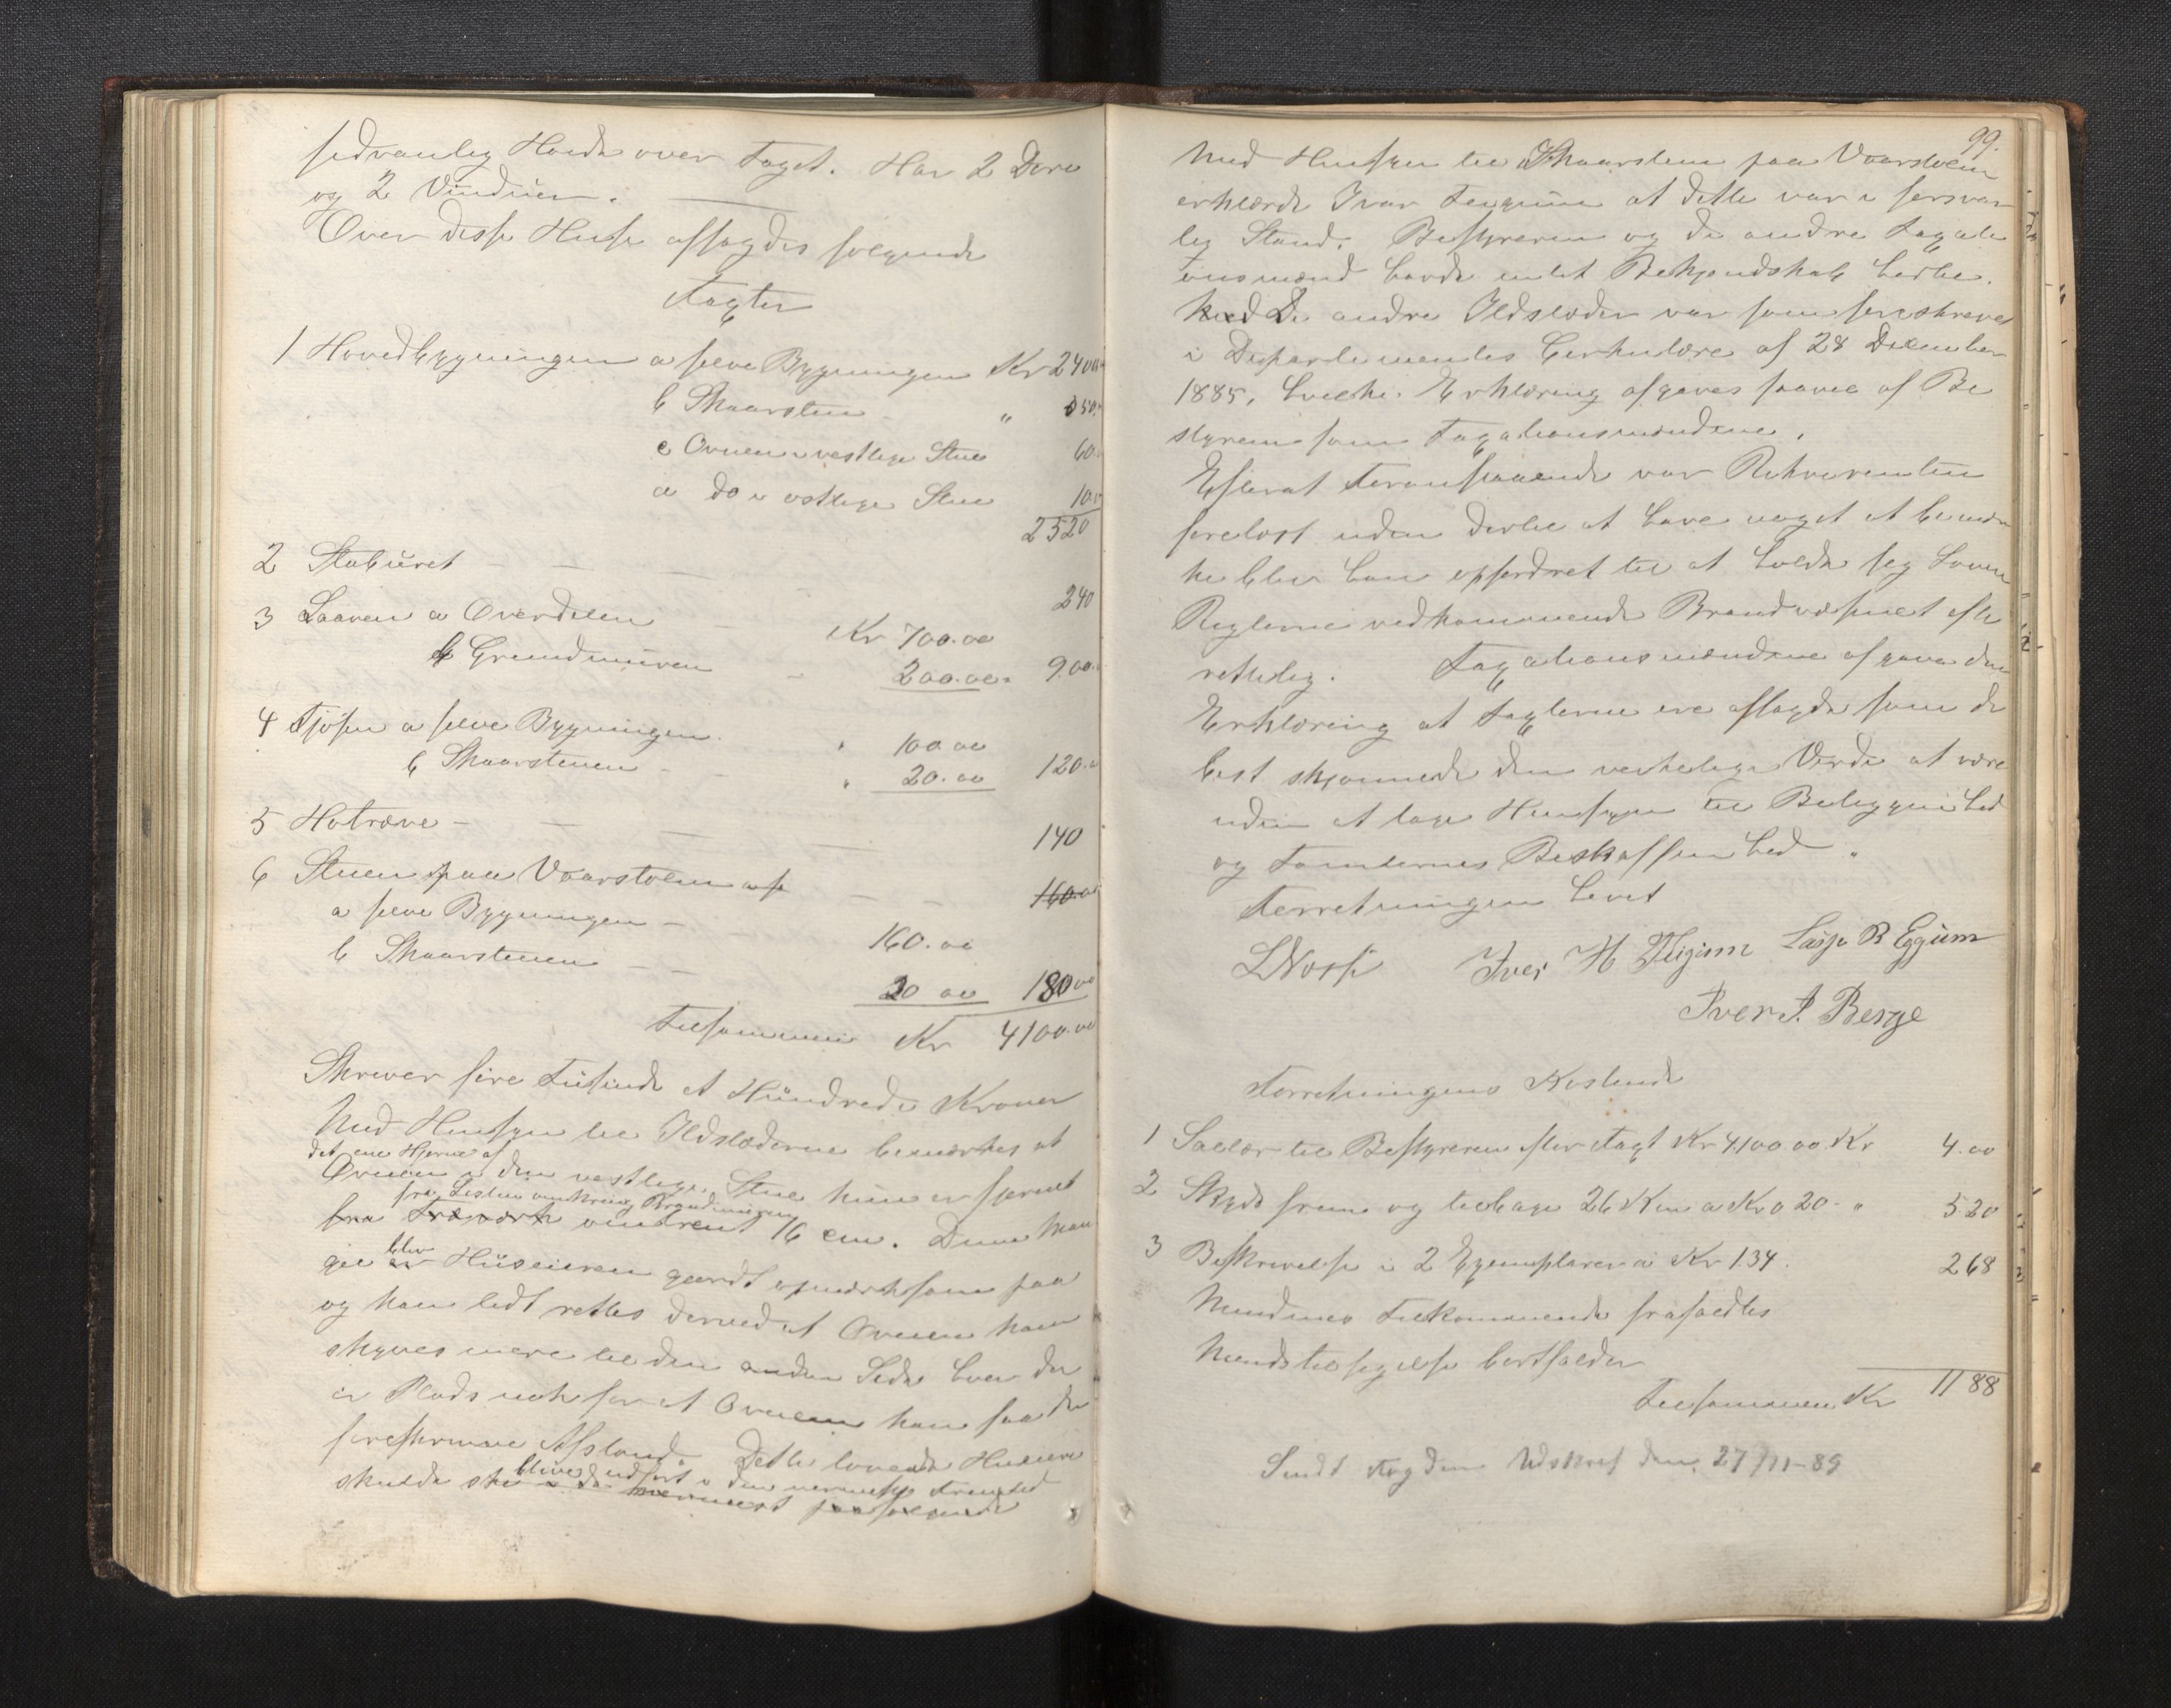 sedvanlig Høide over Taget. Har 2 Døre
og 2 Vinduer.
Over disse Huse afsagdes følgende
Taxter
1 Hovedbygningen a selve Bygningen Kr 2400.
b Skaarsten " 50.
c Ovnen i vestlige Stue 60.
d do i østlige Stue 10.
2520
2 Staburet - - - 240
3 Laaven a Overdelen - Kr 700.00
b Grundmuren - 200.00 900.
4 Fjøsen a selve Bygningen " 100.00
b Skaarstenen - - " 20.00 120.
5 Hotræve - - - 140
6 Stuen paa Vaarstølen - - 160.00
a selve Bygningen -
b Skaarstenen - - 160.00
20 00 180 00
Tilsammen Kr 4100.00
Skriver fire Tusinde et Hundrede Kroner
Med Hensyn til Ildstæderne bemærkes at
det ene Hjørne af
Ovnen i den vestlige Stue kun er fjernet
fra Listen omkring Brandmuren
fra Træværk omtrent 16 cm. Denne Man
gel blev Huseieren gjordt opmærksom paa
og kan lidt rettes derved at Ovnen kan
skyves mere til den anden Side hvor der
er Plads nok for at Ovnen kan faa den
foreskrevne Afstand. Dette lovede Huseieren
blive udført i den nærmeste Fremtid
skulde ske i de nærmest paafølgende
99.
Med Hensyn til Skaarsten paa Vaarstølen
erklærde Ivar Tergium at dette var i forsvar
lig Stand. Bestyreren og de andre Taxati
onsmænd havde intet Bekjendskab hertil.
De andre Ildstæder var som foreskrevet
i Departementets Cirkulære af 28 Desember
1885, hvilke Erklæring afgaves saavel af Be
styreren som Taxationsmændene.
Efterat Foranstaaende var Rekvirenten
forelæst uden dertil at have noget at bemær
ke blev han opfordret til at holde sig Loven
Reglerne vedkommende Brandvæsnet efte
rettelig. Taxationsmændene afgave den
Erklæring at Taxterne ere afsagde som de
best skjønnede den verkelige Verdi at være
uden at tage Hensyn til Beliggenhed
og Tomternes Beskaffenhed.
Forretningen hævet
LNosse Iver H Fligium Lasse B Eggum
Iver I. Berge
Forretningens Kostende
1 Salær til Bestyreren efter Taxt Kr 4100.00 Kr 4.00
2 Skyds frem og tilbage 26 Km a Kr 0 20 - " 5 20
3 Beskrivelse i 2 Exemplarer a Kr 1.34. 2 68
Mændenes Tilkommende frafaldtes
Mændstilsigelse bortfalder
Tilsammen Kr 11 88
Sendt Fogden Udskrift den 27/11-89